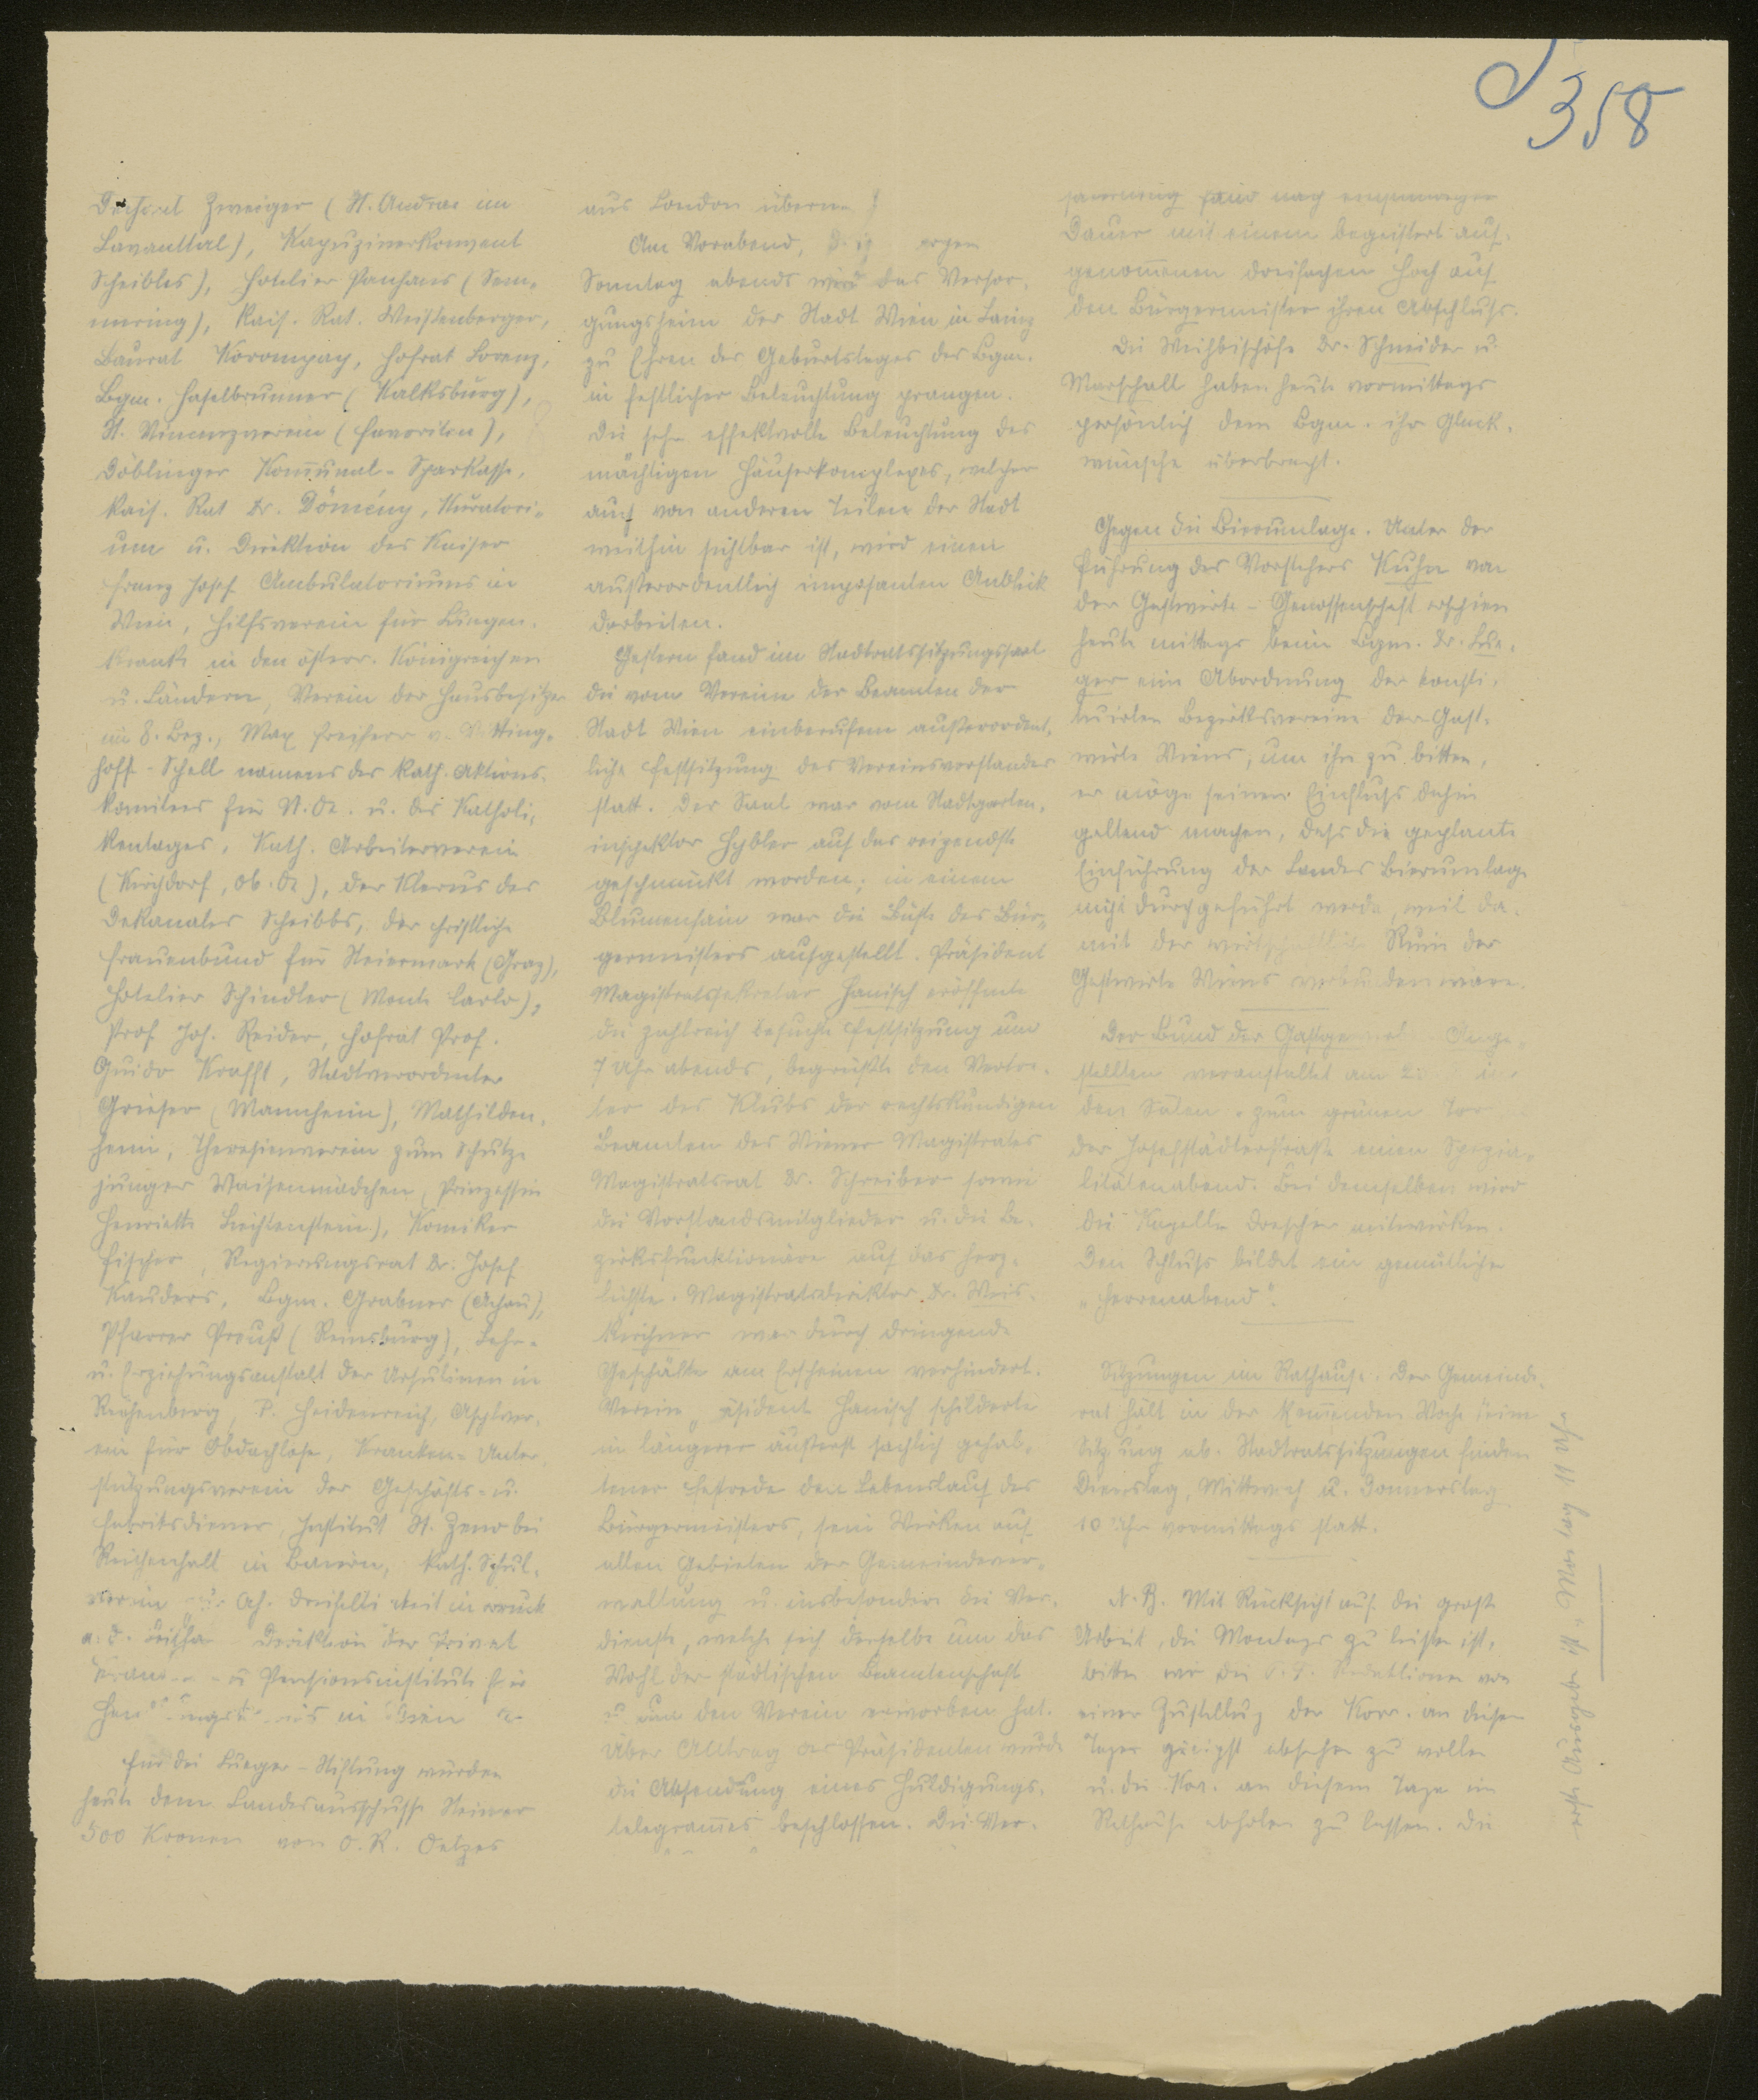 358
Dechant Zweiger (St. Andrae im
Lavanttal), Kapuzinerkonvent
Scheibbs), Hotelier Panhans (Sem-
mering), Kais. Rat. Weistenberger,
Baurat Korompay, Hofrat Lorenz,
Bgm. Haselbrunner (Kalksburg),
St. Vincenzverein (Favoriten),
Döblinger Kom̅unal-Sparkasse,
Kais. Rat Dr. Dömény, Kuratori-
um u. Direktion des Kaiser
Franz Josef Ambulatoriums in
Wien, Hilfsverein für Lungen-
kranke in den österr. Königreichen
u. Ländern, Verein der Hausbesitzer
im 8. Bez., Max Freiherr v. Vitting-
hoff-Schell namens des kath. Aktions-
komitees für N.Oe. u. des Katholi-
kentages, Kath. Arbeiterverein
(Kirchdorf, Ob.Oe), der Klerus des
Dekanates Scheibbs, der christliche
Frauenbund für Steiermark (Graz),
Hotelier Schindler (Monte Carlo),
Prof. Jos. Reider, Hofrat Prof.
Guido Krafft, Stadtverordneter
Grieser (Mannheim), Mathilden-
heim, Theresienverein zum Schutze
junger Waisenmädchen, Prinzessin
Henriette Liechtenstein), Komiker
Fischer, Regierungsrat Dr. Josef
Kauders, Bgm. Grabner (Achau),
Pfarrer Preuß (Reinsburg), Lehr-
u. Erziehungsanstalt der Ursulinen in
Reichenberg, P. Heidenreich, Asylver-
ein für Obdachlose, Kranken-Unter-
stützungsverein der Geschäfts- u.
Fabriksdiener, Institut St. Zeno bei
Reichenhall in Baiern, Kath. Schul-
verein Dreifaltigkeit in Bruck
a. d. Leitha Direktion der Privat
Kranken- u Pensionsinstitute für
in Wien
Für die Lueger-Stiftung wurden
heute dem Landesausschusse Steiner
500 Kronen von O. R. Oelzes
aus London
Am Vorabend, d. i. morgen
Sonntag abends wird das Versor-
gungsheim der Stadt Wien in Lainz
zu Ehren des Geburtstages des Bgm.
in festlicher Beleuchtung prangen.
Die sehr effektvolle Beleuchtung des
mächtigen Häuserkomplexes, welcher
auch von anderen Teilen der Stadt
weithin sichtbar ist, wird einen
außerordentlich imposanten Anblick
darbieten.
Gestern fand im Stadtratssitzungssaal
die vom Vereine der Beamten der
Stadt Wien einberufene außerordent-
liche Festsitzung des Vereinsvorstandes
statt. Der Saal war vom Stadtgarten-
inspektor Hybler auf das reizendste
geschmückt worden; in einem
Blumenhain war die Büste des Bür-
germeisters aufgestellt. Präsident
Magistratssekretär Hanisch eröffnete
die zahlreich besuchte Festsitzung um
7 Uhr abends, begrüßte den Vertre-
ter des Klubs der rechtskundigen
Beamten des Wiener Magistrates
Magistratsrat Dr. Schreiber sowie
die Vorstandsmitglieder u. die Be-
zirksfunktionäre auf das herz-
lichste. Magistratsdirektor Dr. Weis-
kirchner war durch dringende
Geschäfte am Erscheinen verhindert.
Vereinspräsident Hanisch schilderte
in längerer äußerst sachlich gehal-
tener Festrede den Lebenslauf des
Bürgermeisters, sein Wirken auf
allen Gebieten der Gemeindever-
waltung u. insbesondere die Ver-
dienste, welche sich derselbe um das
Wohl der städtischen Beamtenschaft
u um den Verein erworben hat.
Über Antrag des Präsidenten wurde
die Absendung eines Huldigungs-
telegram̅es beschlossen. Die Ver-
sammlung fand nach einstündiger
Dauer mit einem begeistert auf-
genom̅enen dreifachen Hoch auf
den Bürgermeister ihren Abschluss.
Die Weihbischöfe Dr. Schneider u.
Marschall haben heute vormittags
persönlich dem Bgm. ihre Glück-
wünsche überbracht.
Gegen die Bierumlage. Unter der
Führung des Vorstehers Kuhn von
der Gastwirte-Genossenschaft erschien
heute mittags beim Bgm. Dr. Lue-
ger eine Abordnung der konsti-
tuirten Bezirksvereine der Gast-
wirte Wiens, um ihn zu bitten,
er möge seinen Einfluss dahin
geltend machen, dass die geplante
Einführung der Landes Bierumlage
nicht durchgeführt werde, weil da-
mit der wirtschaftliche Ruin der
Gastwirte Wiens verbunden wäre.
Der Bund der Ange-
stellten veranstaltet am
den Sälen „zum grünen Tor
der Josefstädterstraße einen Spezia-
litätenabend. Bei demselben wird
die Kapelle Drescher mitwirken.
Den Schluss bildet ein gemütlicher
„Herrenabend".
Sitzungen im Rathause. Der Gemeinde-
rat hält in der kom̅enden Woche keine
Sitzung ab. Stadtratssitzungen finden
Dienstag, Mittwoch u. Donnerstag
10 Uhr vormittags statt.
N.B. Mit Rücksicht auf die große
Arbeit, die Montags zu leisten ist,
bitten wir die P.T. Redaktionen von
einer Zustellung der Korr. an diesem
Tage gütigst absehen zu wollen
u. die Kor. an diesem Tage im
Rathause abholen zu lassen. Die
erste Ausgabe ist Montag 11 Uhr